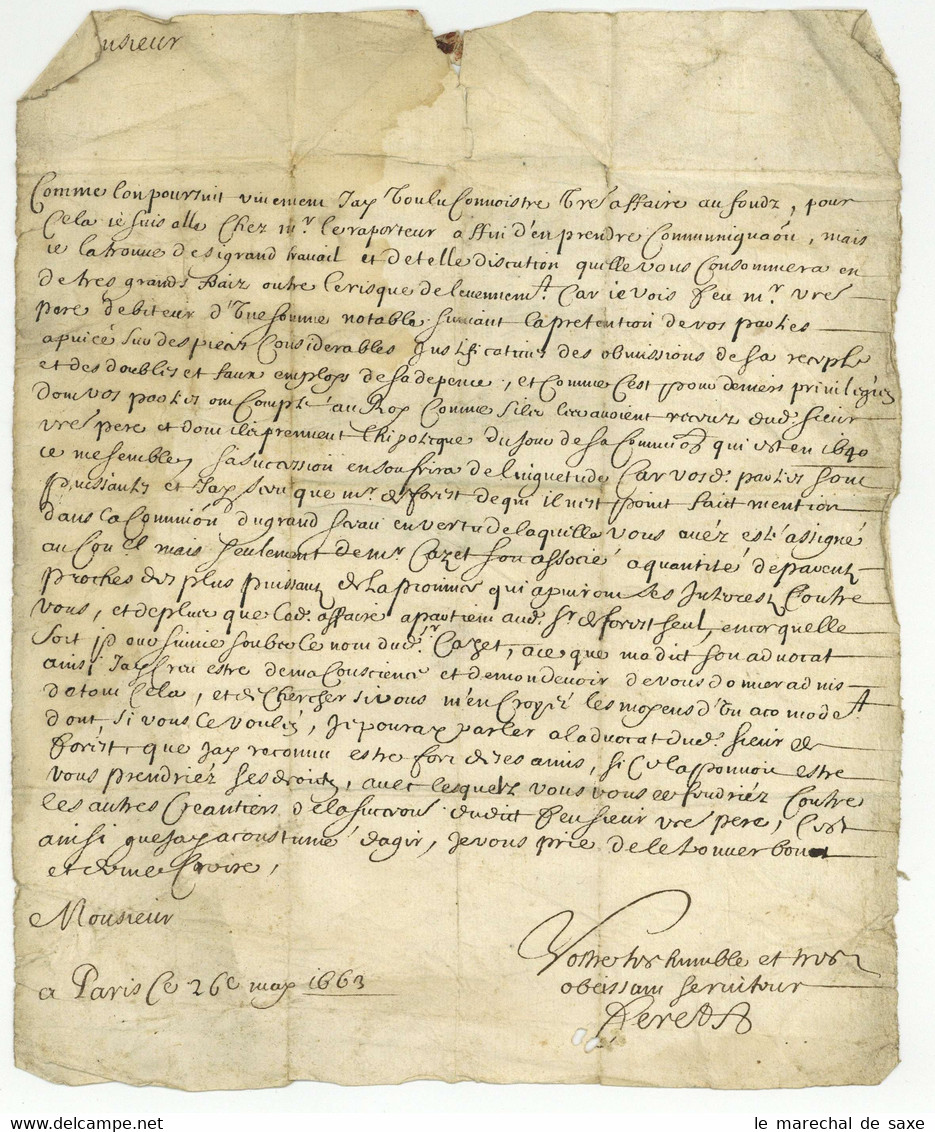 usieur
Comme lon poursuit vivement Jay voulu Connoistre vre affaire au fondz, pour
Cela ie suis allé Chez mr. le raporteur affin d'en prendre Communiquaōn, mais
ie la trouve de si grand travail et de telle discution quelle vous Consommera en
de tres grands fraiz outre le risque de levennemt. Car ie vois feu mr. vre
pere debiteur d'une somme notable suivant la pretention de vos parties
apuiée sur des pieces Considerables Justificatives des obmissions de sa recepte
et des doubles et faux employs de sa depence, et Comme C'est pour deniers privilegiez
dont vos parties ont Compté au Roy Comme silz les avoient receuz dud. sieur
vre pere et dont ilz prennent lhipoteque du jour de sa Commion qui est en 1640
ie me semble, sa succession en soufrira de linquietude Car vosd. parties sont
puissantes et Jay sceu que mr. de forest de qui il n'est point faict mention
dans la Commiōn du grand sceau en vertu de laquelle vous avéz esté assigné
au Conel mais seulement de mr Cazet son associé a quantité de parentz
proches des plus puissans de la province qui apuiront ses Interestz Contre
vous, et de plus que lad. affaire apartient aud. Sr. de forest seul, encor quelle
soit poursuivie soubz le nom dud. Sr Cazet, a ce que ma dict son advocat
ainsi Jay creu estre de ma Conscience et de mon devoir de vous donner advis
de tout Cela, et de Chercher si vous m'en Croyéz les moyens d'un acomodet.
dont si vous le vouléz, Je pouray parler a ladvocat dud. sieur de
forest, que Jay reconnu estre fort de mes amis, si Cela pouvoit estre
vous prendriéz ses droitz, avec lesquelz vous vous defendriéz Contre
les autres Creantiers de la succession dudict feu sieur vre pere, C'est
ainsi que jay acoustumé dagir, Je vous prie de le trouver bon
et de me Croire,
Monsieur
Vostre tres humble et tres
obeissant serviteur
a Paris Ce 26e may 1663
le marechal de saxe